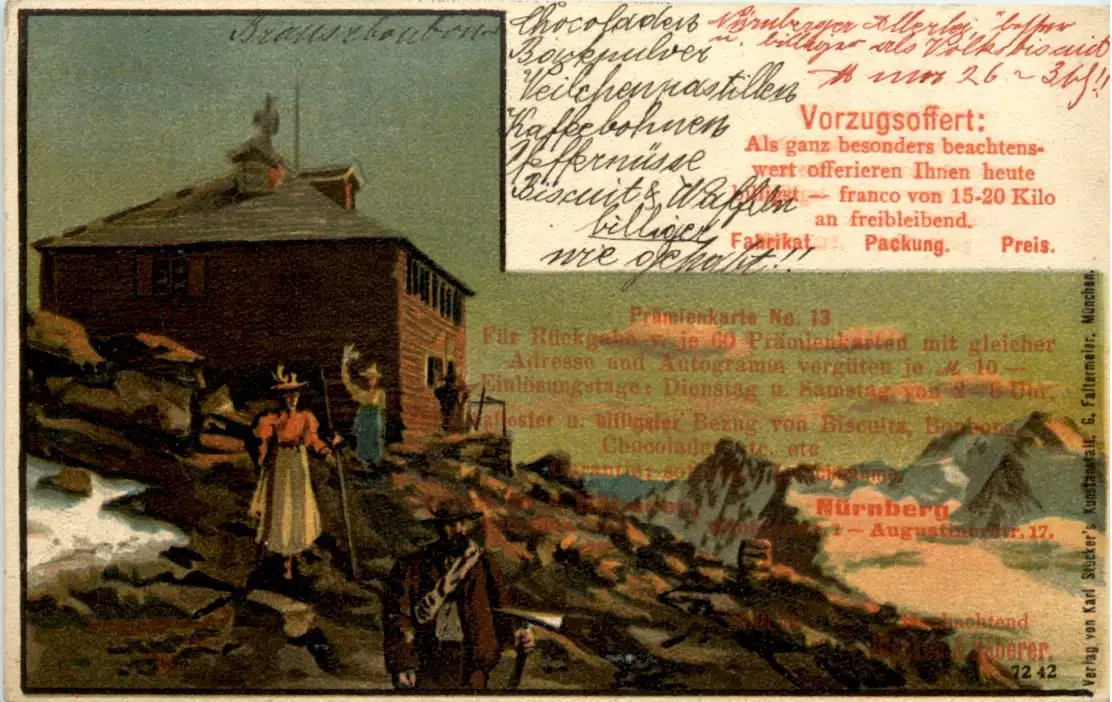 Brausebonbons
Chocoladen
Backpulver
Veilchenpastillen
Kaffeebohnen
Pfeffernüsse
Biscuit & Waffeln
billiger
wie gehabt!!
Nürnberger Allerlei, besser
u. billiger als Volksbiscuit
M nur 26
Vorzugsoffert:
Als ganz besonders beachtens-
wert offerieren Ihnen heute
billigst — franco von 15-20 Kilo
an freibleibend.
Fabrikat. Packung. Preis.
Prämienkarte No. 13
Für Rückgabe v. je 60 Prämienkarten mit gleicher
Adresse und Autogramm vergüten je M 10.—
Einlösungstage: Dienstag u. Samstag von 2-6 Uhr.
u. billigster Bezug von Biscuits, Bonbons
Chocoladen etc. etc
Nürnberg
Augustinerstr. 17.
7242
Verlag von Karl Stücker's Kunstanstalt, G. Faltermeier, München.